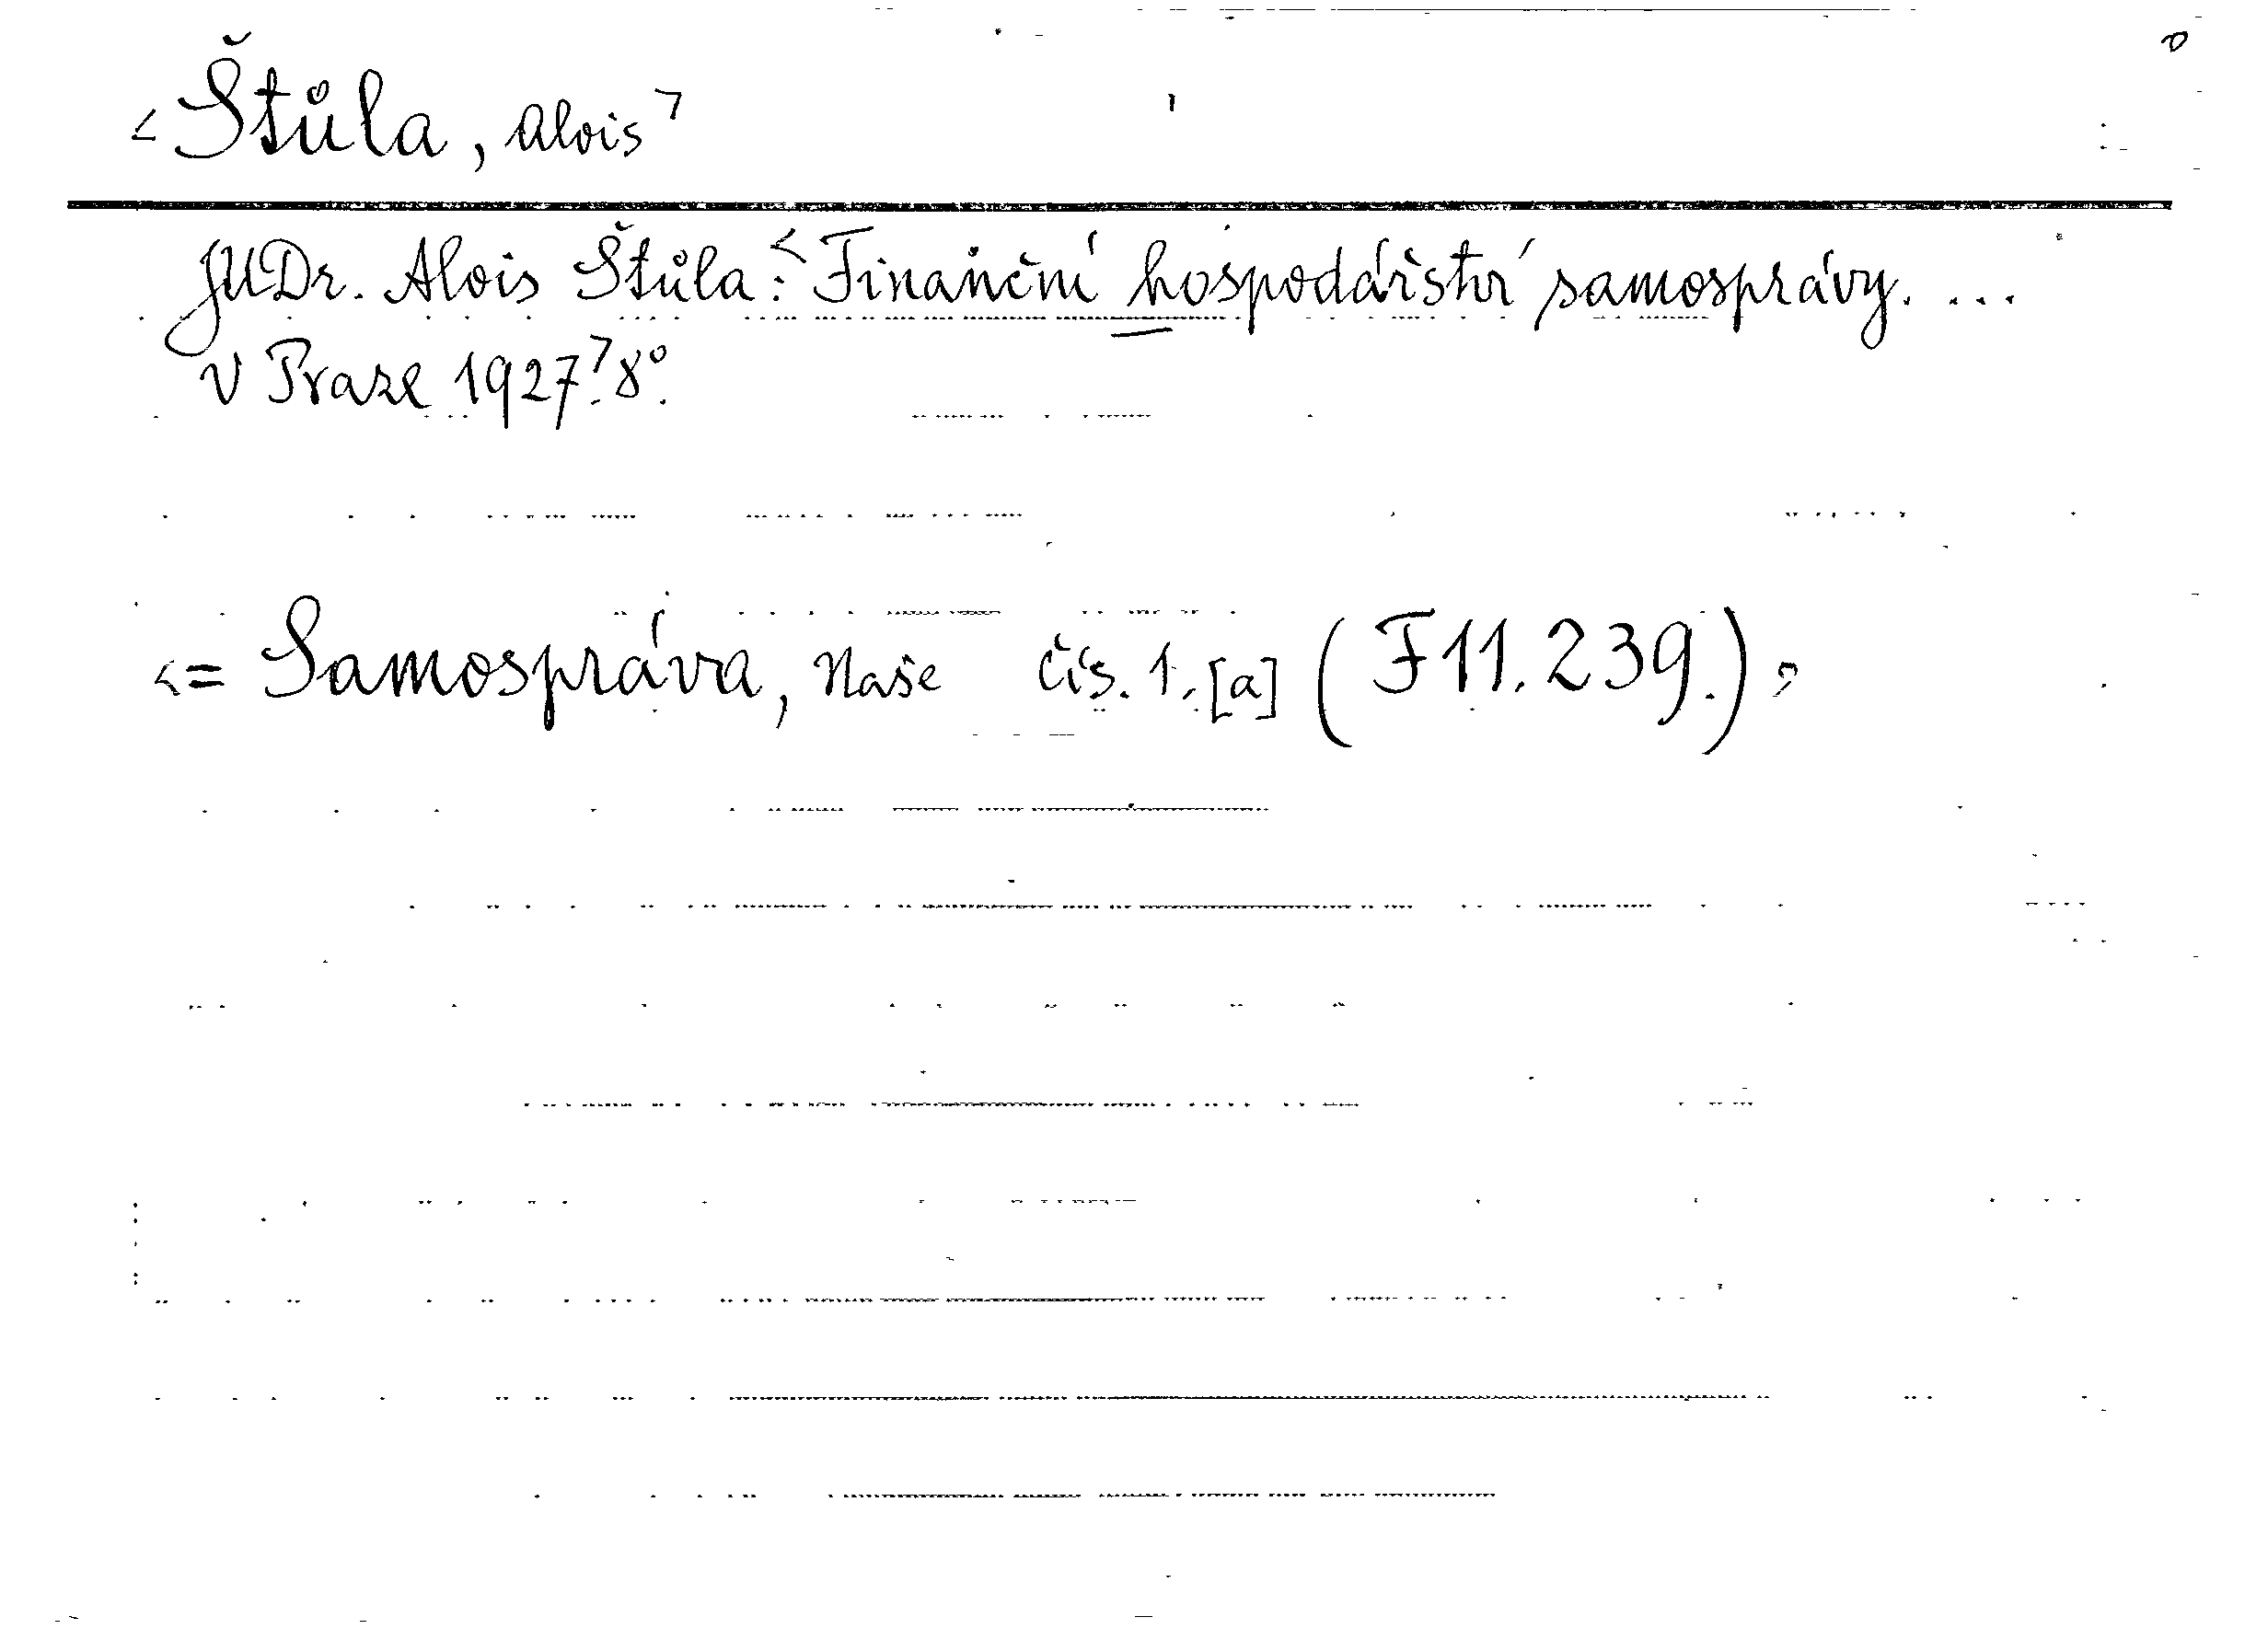 <Štůla, Alois>
JUDr. Alois Štůla:< Finanční hospodářství samosprávy. ...
V Praze 1927.> 8°.
<= Samospráva, Naše čís. 1. [a] (F 11. 239.) >